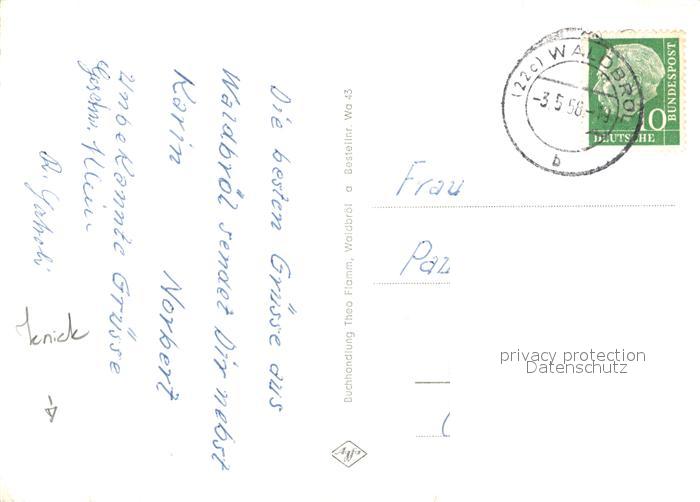 Die besten Grüsse aus
Waldbröl sendet Dir nebst
Karin Norbert
Unbekannte Grüsse
Geschw. Klein
R.
knick
Buchhandlung Theo Flamm, Waldbröl a Bestellnr. Wa 43
(22c) WALDBRÖL
-3.5.58.-19
b
10
DEUTSCHE
BUNDESPOST
Frau
Pau
privacy protection
Datenschutz